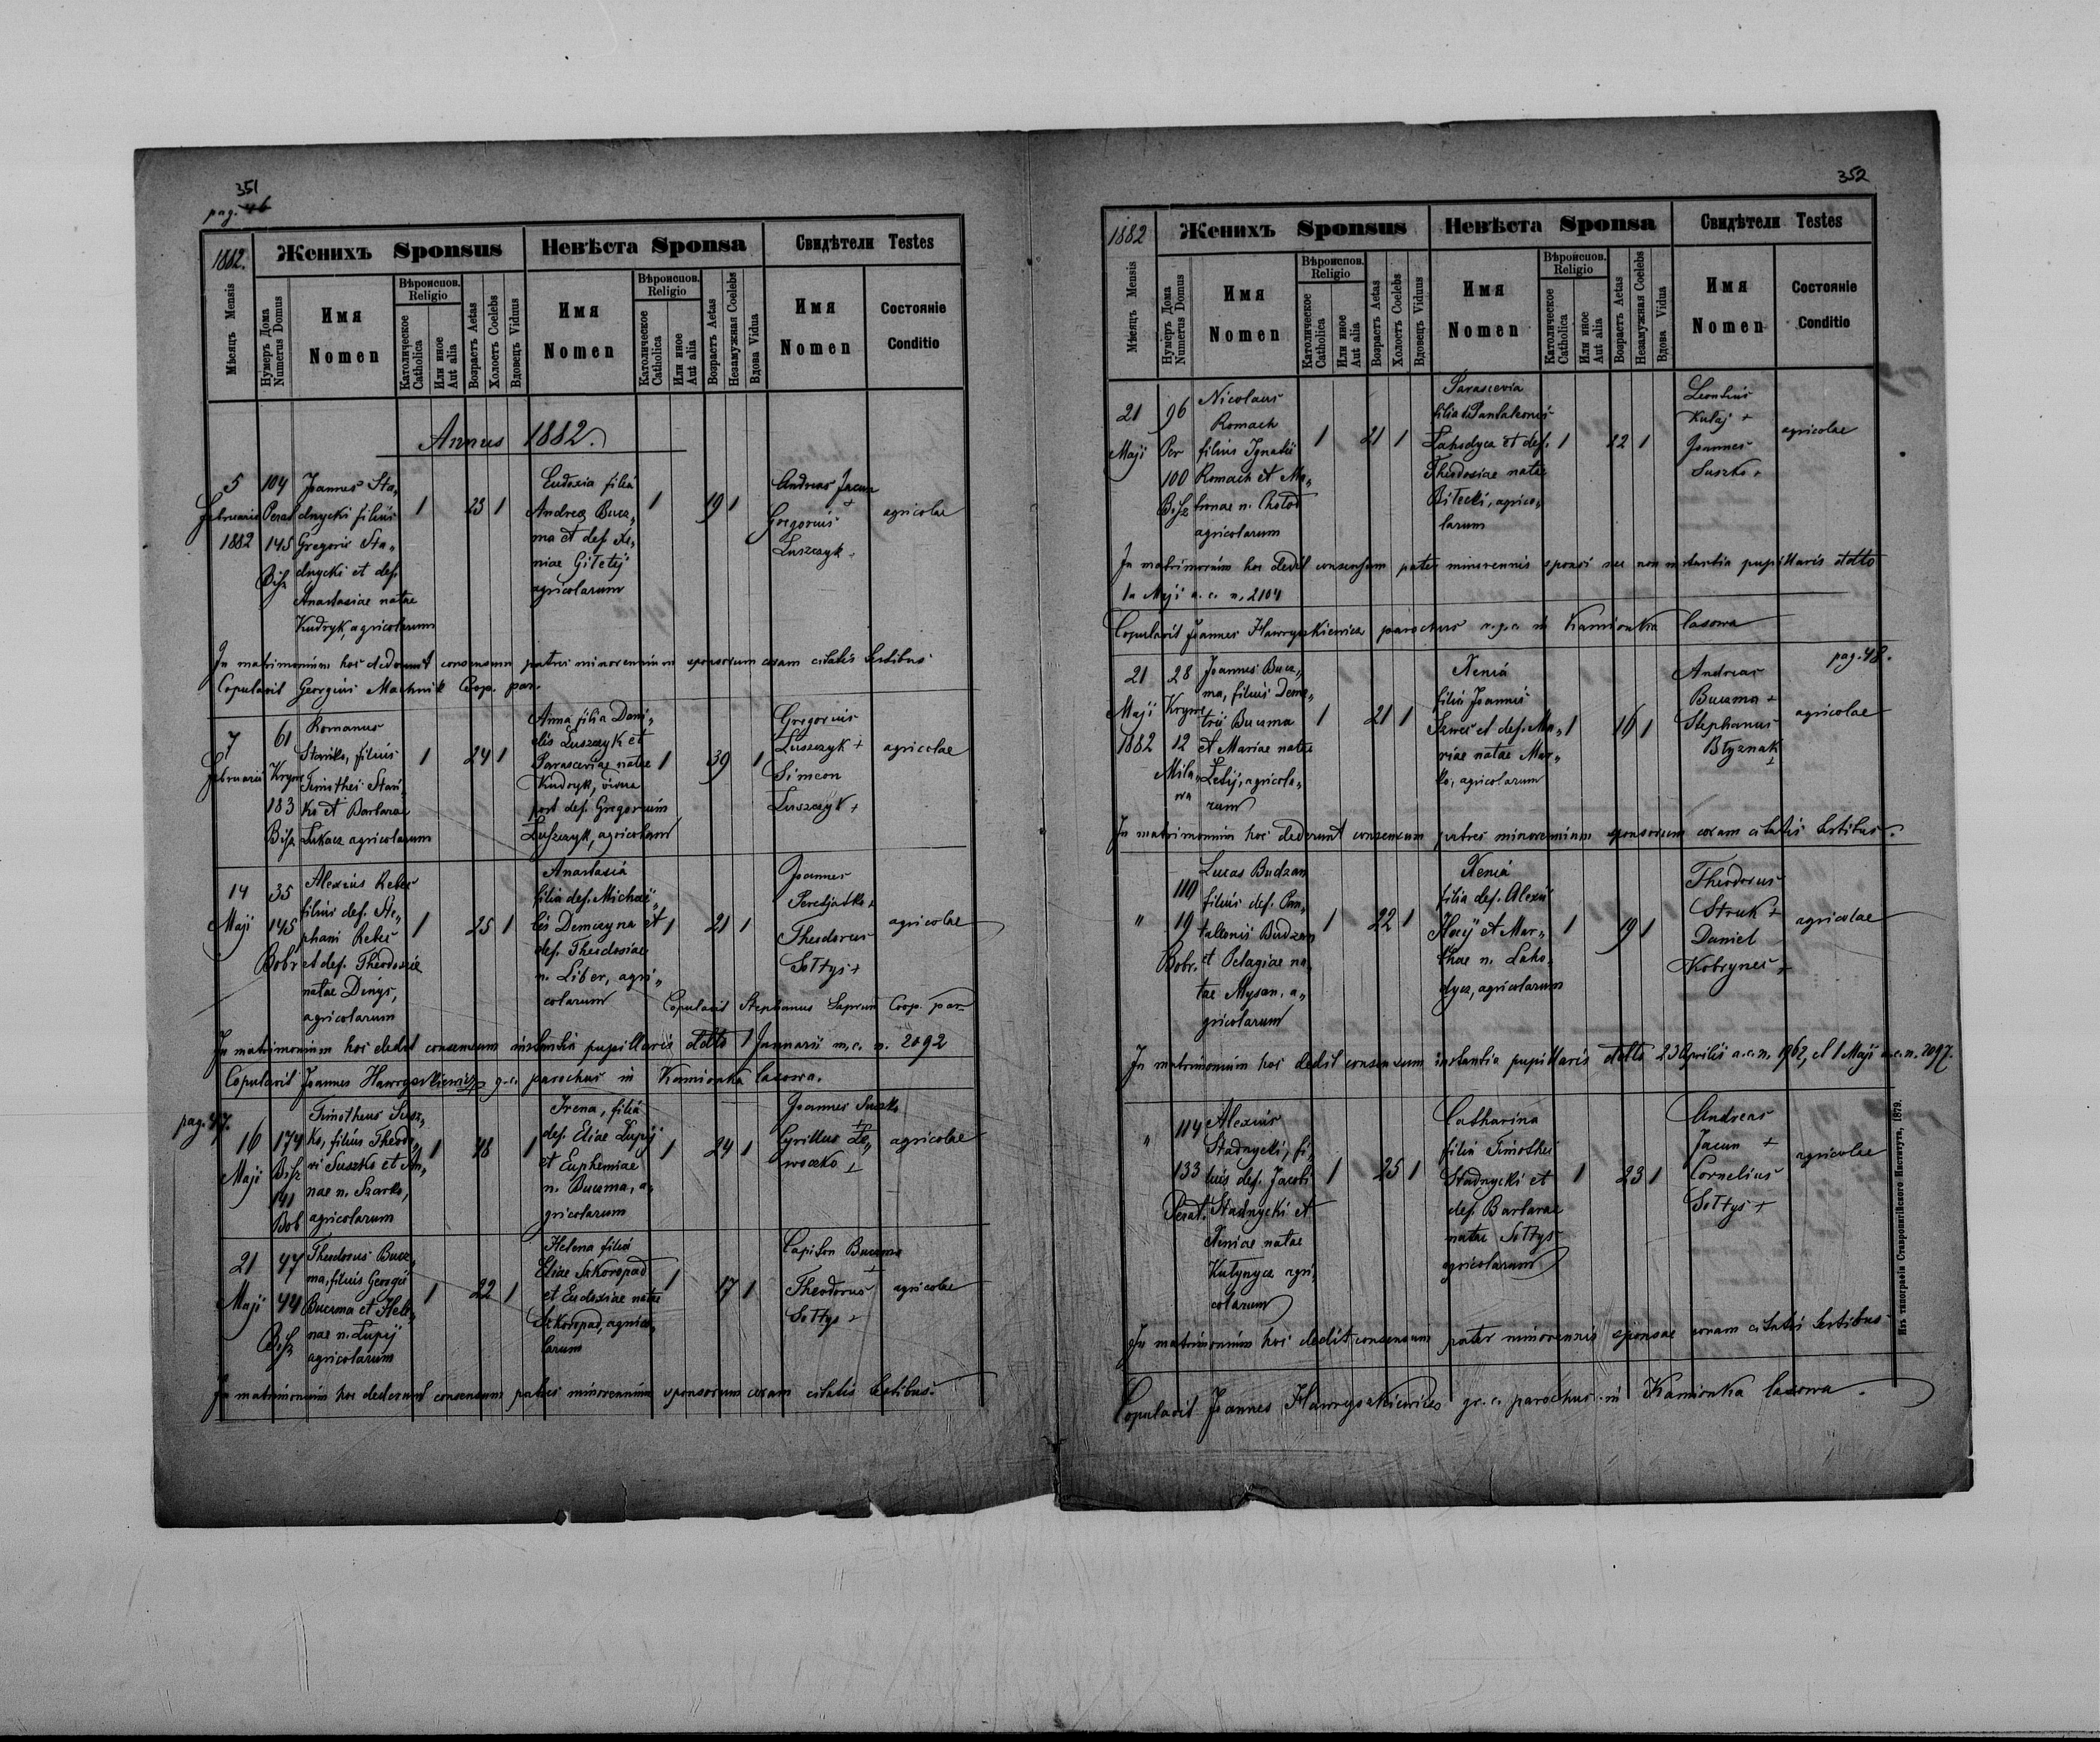 351
pag. 46
1882.
Женихъ Sponsus
Невѣста Sponsa
Свидѣтели Testes
Мѣсяцъ Mensis
Нумеръ Дома
Numerus Domus
Имя
Nomen
Вѣроиспов.
Religio
Католическое
Catholica
Или иное
Aut alia
Возрастъ Aetas
Холостъ Coelebs
Вдовецъ Viduus
Имя
Nomen
Вѣроиспов.
Religio
Католическое
Catholica
Или иное
Aut alia
Возрастъ Aetas
Незамужная Coelebs
Вдова Vidua
Имя
Nomen
Состояніе
Conditio
Annus 1882.
5
Februarii
1882
104
Perat
145
Bisz
Joannes Sta„
dnycki filius
Gregorii Sta„
dnycki et def.
Anastasiae natae
Kudryk, agricolarum
1 23 1
Eudoxia filia
Andreae Bucz„
ma et def. Xe„
niae Giletij
agricolarum
1 19 1
Andreas Jacun +
Gregorius
Luszczyk +
agricolae
In matrimonium hoc dederunt consensum patres minorennium sponsorum coram citatis testibus
Copulavit Georgius Machnik Coop. par.
7
Februarii
61
Kryne
183
Bisz
Romanus
Stariko, filius
Timothei Stari„
ko et Barbarae
Lukacz agricolarum
1 24 1
Anna filia Dani„
elis Luszczyk et
Parasceviae natae
Kudryk, vidua
post def. Gregorium
Luszczyk, agricolarum
1 39 1
Gregorius
Luszczyk +
Simeon
Luszczyk +
agricolae
14
Maji
35
145
Bobr
Alexius Rebec
filius def. Ste„
phani Rebec
et def. Theodosiae
natae Denys,
agricolarum
1 25 1
Anastasia
filia def. Michaë„
lis Demczyna et
def. Theodosiae
n. Liber, agri„
colarum
1 21 1
Joannes
Peretjatko +
Theodorus
Soltys +
agricolae
Copulavit Stephanus Saprun Coop. par.
In matrimonium hoc dedit consensum instantia pupillaris ddto 1 Januarii m. c. n. 2092
Copulavit Joannes Hawryszkiewicz g. c. parochus in Kamionka lasowa.
pag. 47.
16
Maji
174
Bisz
141
Bob
Timotheus Susz„
ko, filius Theodo„
ri Suszko et An„
nae n. Szarko,
agricolarum
1 48 1
Irena, filia
def. Eliae Lupij
et Euphemiae
n. Buczma, a„
gricolarum
1 24 1
Joannes Suszko
+
Cyrillus Le„
woczko +
agricolae
21
Maji
47
44
Bisz
Theodorus Bucz„
ma, filius Georgii
Buczma et Hele„
nae n. Lupij
agricolarum
1 22 1
Helena filia
Eliae Szkoropad
et Eudoxiae natae
Szkoropad, agrico„
larum
1 17 1
Capiton Buczma
+
Theodorus
Soltys +
agricolae
In matrimonium hoc dederunt consensum patres minorennium sponsorum coram citatis testibus.
352
1882
Женихъ Sponsus
Невѣста Sponsa
Свидѣтели Testes
Мѣсяцъ Mensis
Нумеръ Дома
Numerus Domus
Имя
Nomen
Вѣроиспов.
Religio
Католическое
Catholica
Или иное
Aut alia
Возрастъ Aetas
Холостъ Coelebs
Вдовецъ Viduus
Имя
Nomen
Вѣроиспов.
Religio
Католическое
Catholica
Или иное
Aut alia
Возрастъ Aetas
Незамужная Coelebs
Вдова Vidua
Имя
Nomen
Состояніе
Conditio
21
Maji
96
Per
100
Bisz
Nicolaus
Romach
filius Ignatii
Romach et Ma„
tronae n. Cholod
agricolarum
1 21 1
Parascevia
filia Pantaleonis
Lahodycz et def.
Theodosiae natae
Bilecki, agrico„
larum
1 22 1
Leontius
Kulaj +
Joannes
Suszko +
agricolae
In matrimonium hoc dedit consensum pater minorennis sponsi nec non instantia pupillaris ddto
1a Maji a. c. n. 2104
Copulavit Joannes Hawryszkiewicz parochus r. g. c. in Kamionka lasowa
pag. 48.
21
Maji
1882
28
Kryne
12
Mila„
wa
Joannes Bucz„
ma, filius Deme„
trii Buczma
et Mariae natae
Letij, agricola„
rum
1 21 1
Xenia
filia Joannis
Szwec et def. Ma„
riae natae Mar„
ko, agricolarum
1 16 1
Andreas
Buczma +
Stephanus
Blyznak
+
agricolae
In matrimonium hoc dederunt consensum patres minorennium sponsorum coram citatis testibus.
„
110
19
Bobr.
Lucas Budzan
filius def. Pan„
taleonis Budzan
et Pelagiae na„
tae Mysan, a„
gricolarum
1 22 1
Xenia
filia def. Alexii
Hacij et Mar„
thae n. Laho„
dycz, agricolarum
1 19 1
Theodorus
Struk +
Daniel
Kobrynec +
agricolae
In matrimonium hoc dedit consensum instantia pupillaris ddto 23 Aprilis a. c. n. 1962, et 1 Maji a. c. n. 2097.
„
114
133
Perat.
Alexius
Stadnycki, fi„
lius def. Jacobi
Stadnycki et
Xeniae natae
Kutynycz agri„
colarum
1 25 1
Catharina
filia Timothei
Stadnycki et
def. Barbarae
natae Soltys
agricolarum
1 23 1
Andreas
Jacun +
Cornelius
Soltys +
agricolae
In matrimonium hoc dedit consensum pater minorennis sponsae coram citatis testibus
Copulavit Joannes Hawryszkiewicz gr. c. parochus in Kamionka lasowa.
Изъ типографіи Ставропигійского Института, 1879.